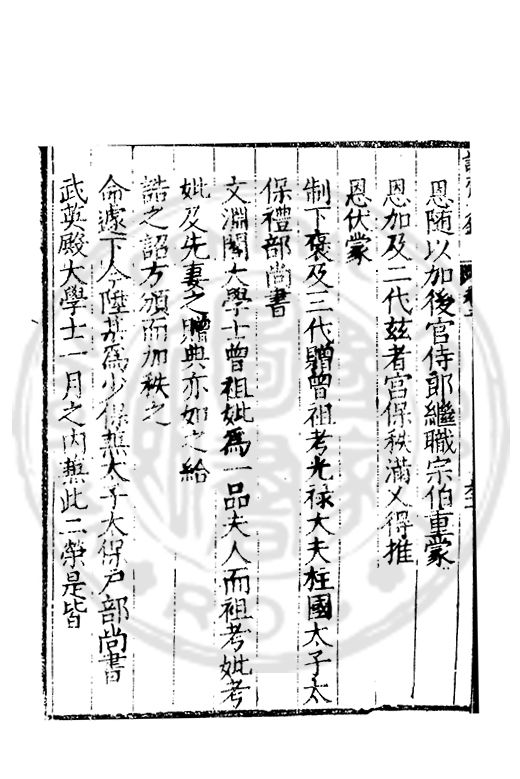 恩随以加後官侍郎繼職宗伯重蒙
恩加及二代兹者宮保秩滿又得推
恩伏蒙
制下褒及三代贈曾祖考光禄大夫柱國太子太
保禮部尚書
文淵閣大學士曾祖妣為一品夫人而祖考妣考
妣及先妻之贈典亦如之給
誥之詔方頒而加秩之
命遽下今陞某為少保兼太子太保戶部尚書
武英殿大學士一月之内兼此二榮是皆